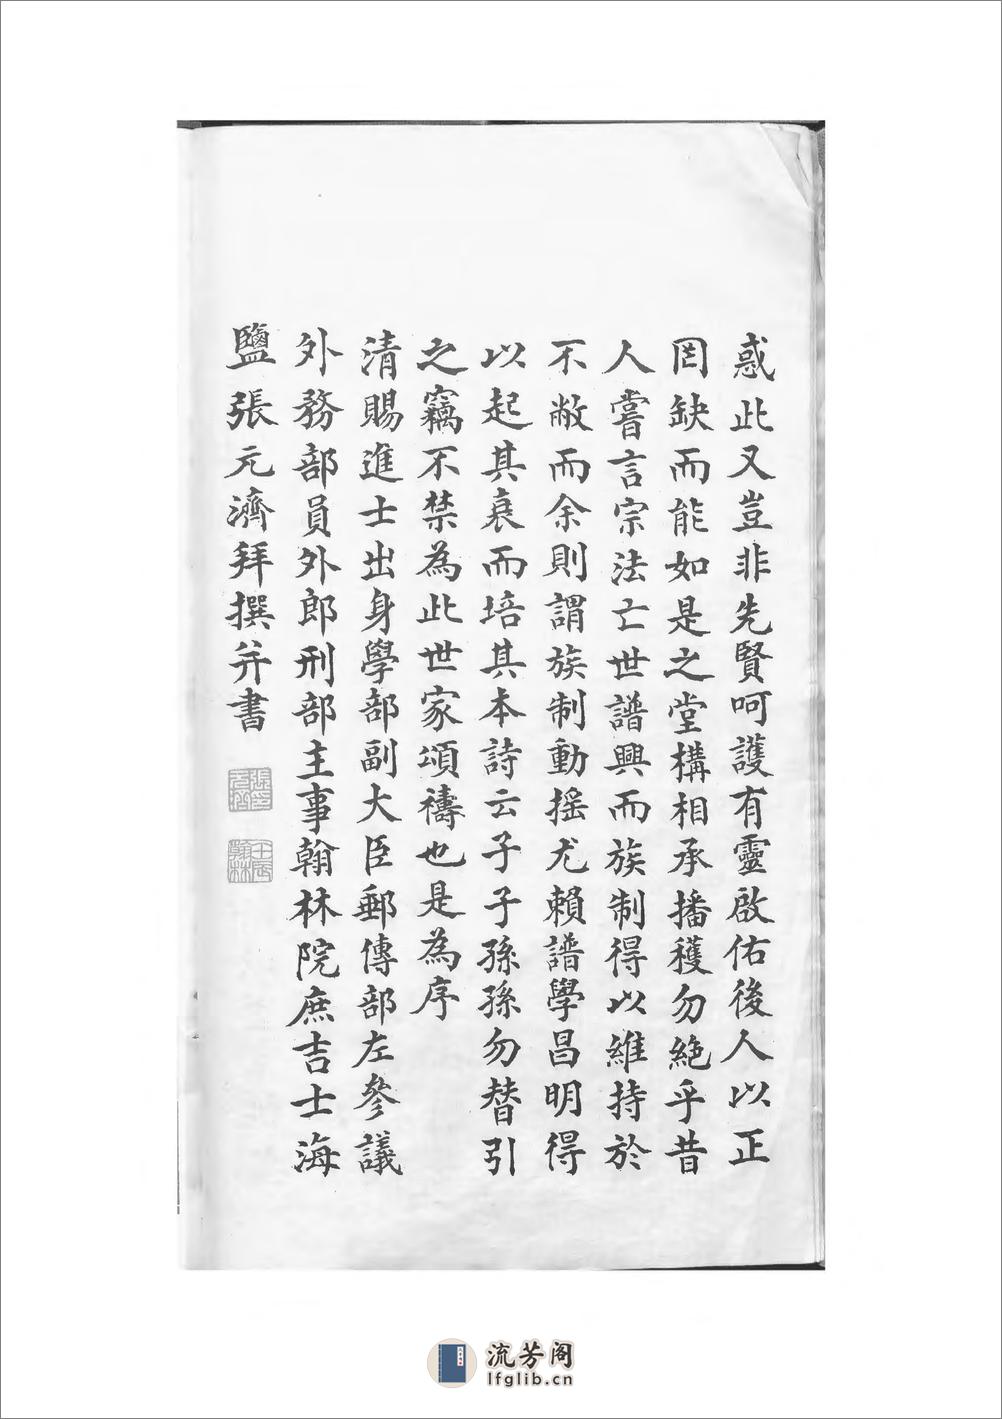 惑此又豈非先賢呵護有靈啟佑後人以正
罔缺而能如是之堂構相承播穫勿絕乎昔
人嘗言宗法亡世譜興而族制得以維持於
不敝而余則謂族制動搖尤賴譜學昌明得
以起其衰而培其本詩云子子孫孫勿替引
之竊不禁為此世家頌禱也是為序
清賜進士出身學部副大臣郵傳部左參議
外務部員外郎刑部主事翰林院庶吉士海
鹽張元濟拜撰并書
張元濟印
壬辰翰林
流芳阁
lfglib.cn